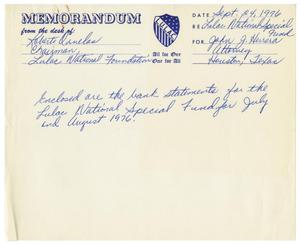 MEMORANDUM
from the desk of
Roberto Ornelas
Chairman,
Lulac National Foundation
LULAC
All for One
One for All
DATE Sept. 24, 1976
RE Lulac National Special
Fund
FOR John J. Herrera
Attorney
Houston, Texas
Enclosed are the bank statements for the
Lulac National Special Fund for July
and August 1976.